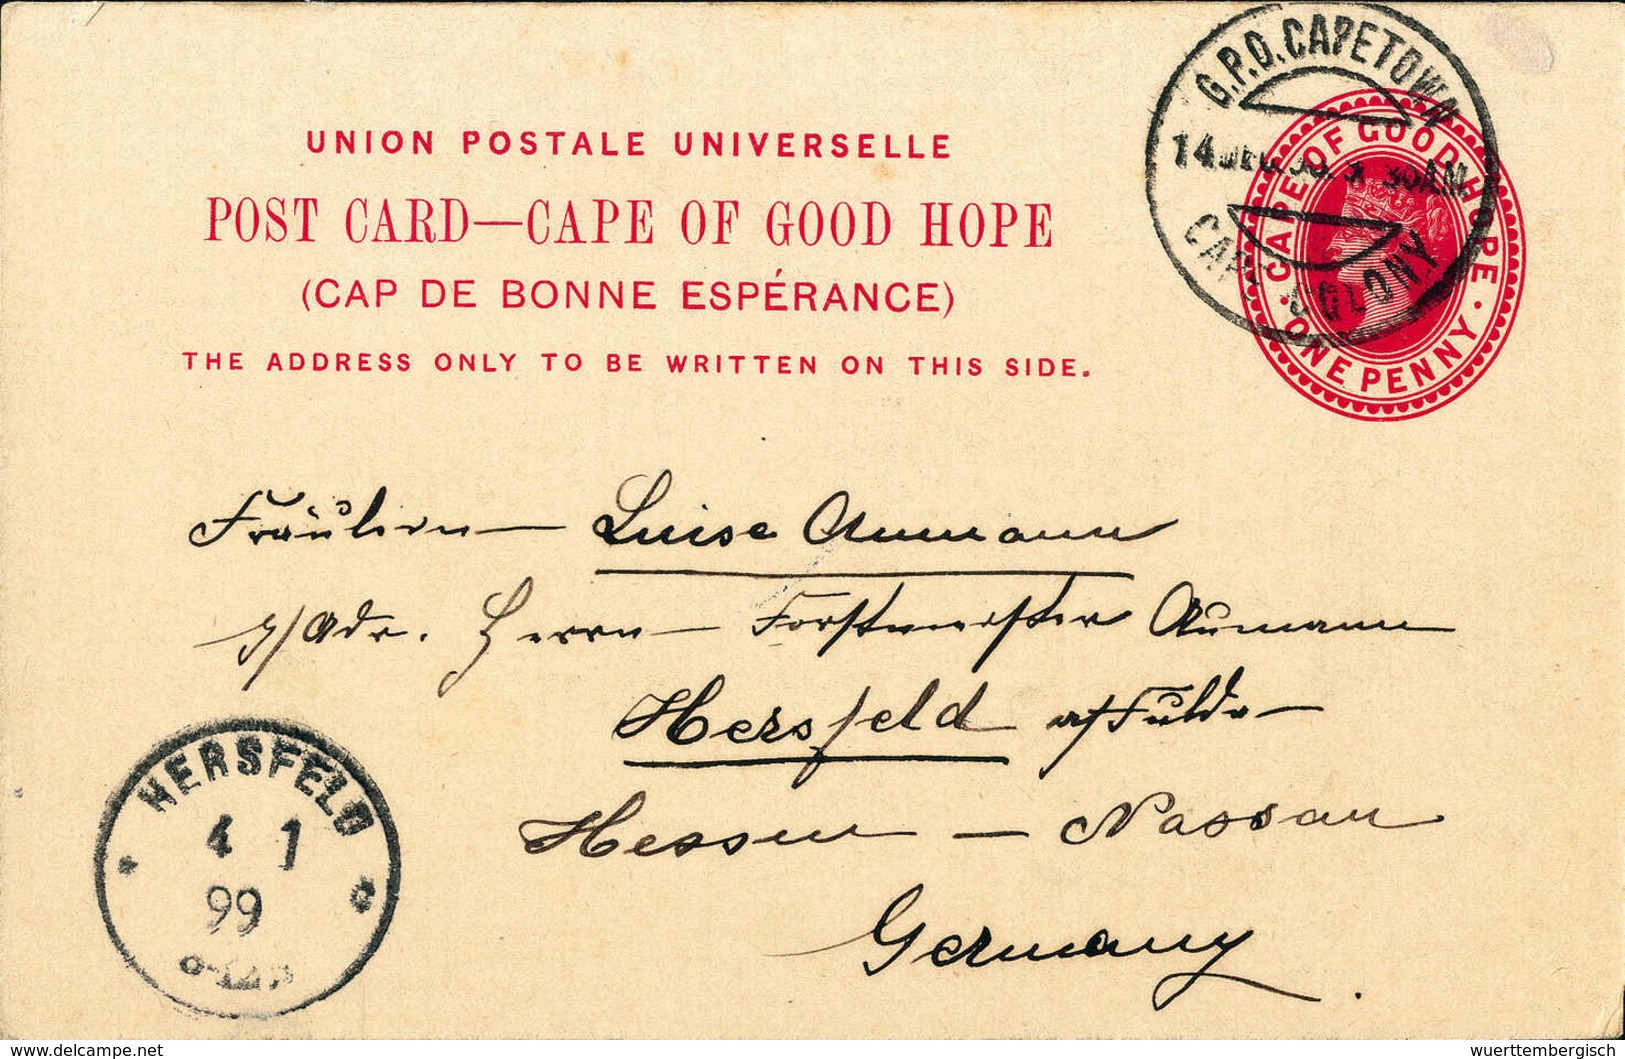 G.P.O. CAPETOWN
14 DEC. 98. 9 30 A.M.
CAPE COLONY
CAPE OF GOOD HOPE
ONE PENNY
UNION POSTALE UNIVERSELLE
POST CARD—CAPE OF GOOD HOPE
(CAP DE BONNE ESPÉRANCE)
THE ADDRESS ONLY TO BE WRITTEN ON THIS SIDE.
Fräulein Luise Aumann
p/Adr. Herrn Forstmeister Aumann
Hersfeld a/Fulda
Hessen — Nassau
Germany.
HERSFELD
4 1
99
delcampe.net
wuerttembergisch